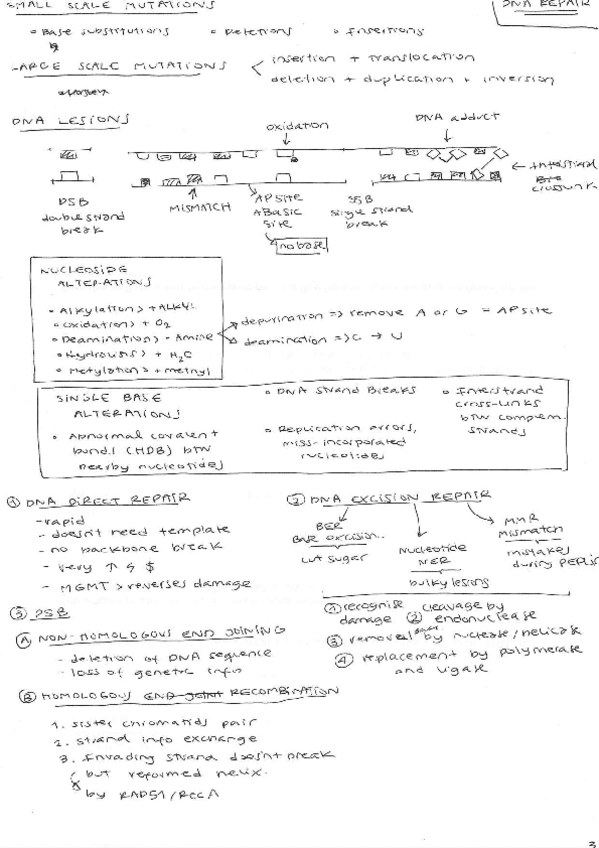 SMALL SCALE MUTATIONS
DNA REPAIR
• Base substitutions • Deletions • Insertions
LARGE SCALE MUTATIONS
insertion + translocation
deletion + duplication + inversion
DNA LESIONS
oxidation
DNA adduct
DSB
double strand
break
MISMATCH
AP site
ABasic
site
no base
SSB
single strand
break
Interstrand
crosslink
NUCLEOSIDE
ALTERATIONS
• Alkylation > + Alkyl
• Oxidation > + O2
• Deamination > - Amine
• Hydrolysis > + H2O
• Metylation > + methyl
depurination => remove A or G = AP site
deamination => C → U
SINGLE BASE
ALTERATIONS
• Abnormal covalent
bond. (HDB) btw
nearby nucleotides
• DNA Strand Breaks
• Replication errors,
miss-incorporated
nucleotides
• Interstrand
cross-links
btw complem.
strands
① DNA DIRECT REPAIR
- rapid
- doesn't need template
- no backbone break
- very ↑ $
- MGMT > reverses damage
② DNA EXCISION REPAIR
BER
Base excision..
cut sugar
Nucleotide
NER
bulky lesions
MMR
Mismatch
mistakes
during
① recognise damage
② cleavage by endonuclease
③ removal by nuclease/helicase
④ replacement by polymerase
and ligase
③ DSB
Ⓐ NON-HOMOLOGOUS END JOINING
- deletion of DNA sequence
- loss of genetic info
Ⓑ HOMOLOGOUS END JOINT RECOMBINATION
1. sister chromatids pair
2. strand info exchange
3. Invading strand doesn't break
but reformed helix.
by RAD51/RecA
3